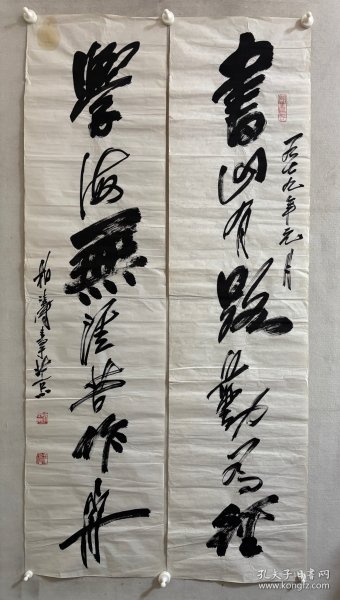 一九七九年元月
書山有路勤為徑
學海無涯苦作舟
孔夫子旧书网
www.kongfz.com